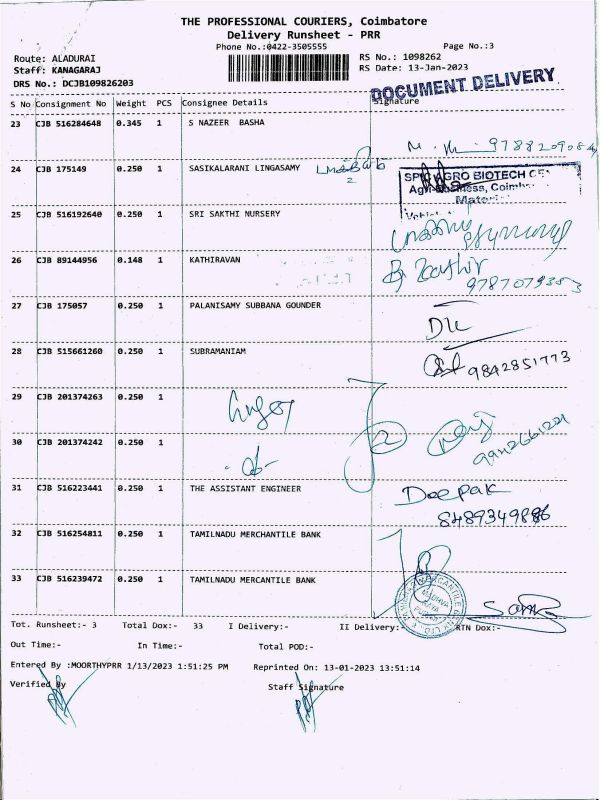 THE PROFESSIONAL COURIERS, Coimbatore
Delivery Runsheet - PRR
Phone No.:0422-3505555 Page No.:3
Route: ALADURAI RS No.: 1098262
Staff: KANAGARAJ RS Date: 13-Jan-2023
DRS No.: DCJB109826203
DOCUMENT DELIVERY
S No Consignment No Weight PCS Consignee Details Signature
23 CJB 516284648 0.345 1 S NAZEER BASHA
24 CJB 175149 0.250 1 SASIKALARANI LINGASAMY
SPIC AGRO BIOTECH
25 CJB 516192640 0.250 1 SRI SAKTHI NURSERY
26 CJB 89144956 0.148 1 KATHIRAVAN
9787079353
27 CJB 175057 0.250 1 PALANISAMY SUBBANA GOUNDER
28 CJB 515661260 0.250 1 SUBRAMANIAM
9842851773
29 CJB 201374263 0.250 1
30 CJB 201374242 0.250 1
31 CJB 516223441 0.250 1 THE ASSISTANT ENGINEER Deepak
8489349886
32 CJB 516254811 0.250 1 TAMILNADU MERCHANTILE BANK
33 CJB 516239472 0.250 1 TAMILNADU MERCANTILE BANK
Tot. Runsheet:- 3 Total Dox:- 33 I Delivery:- II Delivery:- RTN Dox:-
Out Time:- In Time:- Total POD:-
Entered By :MOORTHYPRR 1/13/2023 1:51:25 PM Reprinted On: 13-01-2023 13:51:14
Verified By Staff Signature